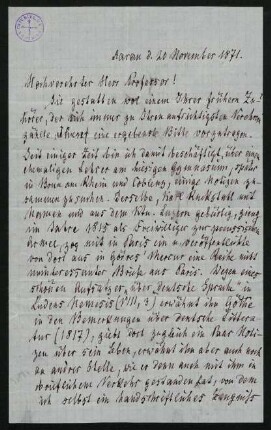 Aarau d. 20 November 1871.
Hochverehrter Herr Professor!
Sie gestatten wol einem Ihrer frühern Zu-
hörer, der sich immer zu Ihren aufrichtigsten Verehrern
zählte, Ihnen eine ergebenste Bitte vorzutragen.
Seit einiger Zeit bin ich damit beschäftigt, über einen
ehemaligen Lehrer am hiesigen Gymnasium, später
in Bonn am Rhein und Coblenz, einige Notizen zu-
sammenzusuchen. Derselbe, Karl Ruckstuhl mit
Namen und aus dem Ktn. Luzern gebürtig, gieng
im Jahre 1815 als Freiwilliger zur preussischen
Armee, zog mit in Paris ein u. veröffentlichte
von dort aus in Görres Mercur eine Reihe nicht
uninteressanter Briefe aus Paris. Wegen eines
schönen Aufsatzes „über deutsche Sprache" in
Ludens Nemesis (VIII, 3) erwähnt ihn Göthe
in den Bemerkungen über deutsche Littera-
tur (1817), giebt dort zugleich ein Paar Noti-
zen über sein Leben, erwähnt ihn aber auch noch
an andrer Stelle, wie er denn auch mit ihm in
brieflichem Verkehr gestanden hat, von dem
ich selbst ein handschriftliches Zeugniss